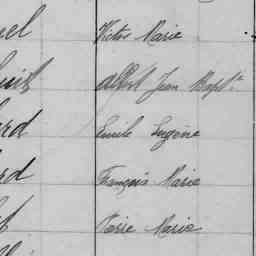 el Victor Marie
Albert Jean Bapt.
rd Emile Eugène
rd François Marie
Pierre Marie